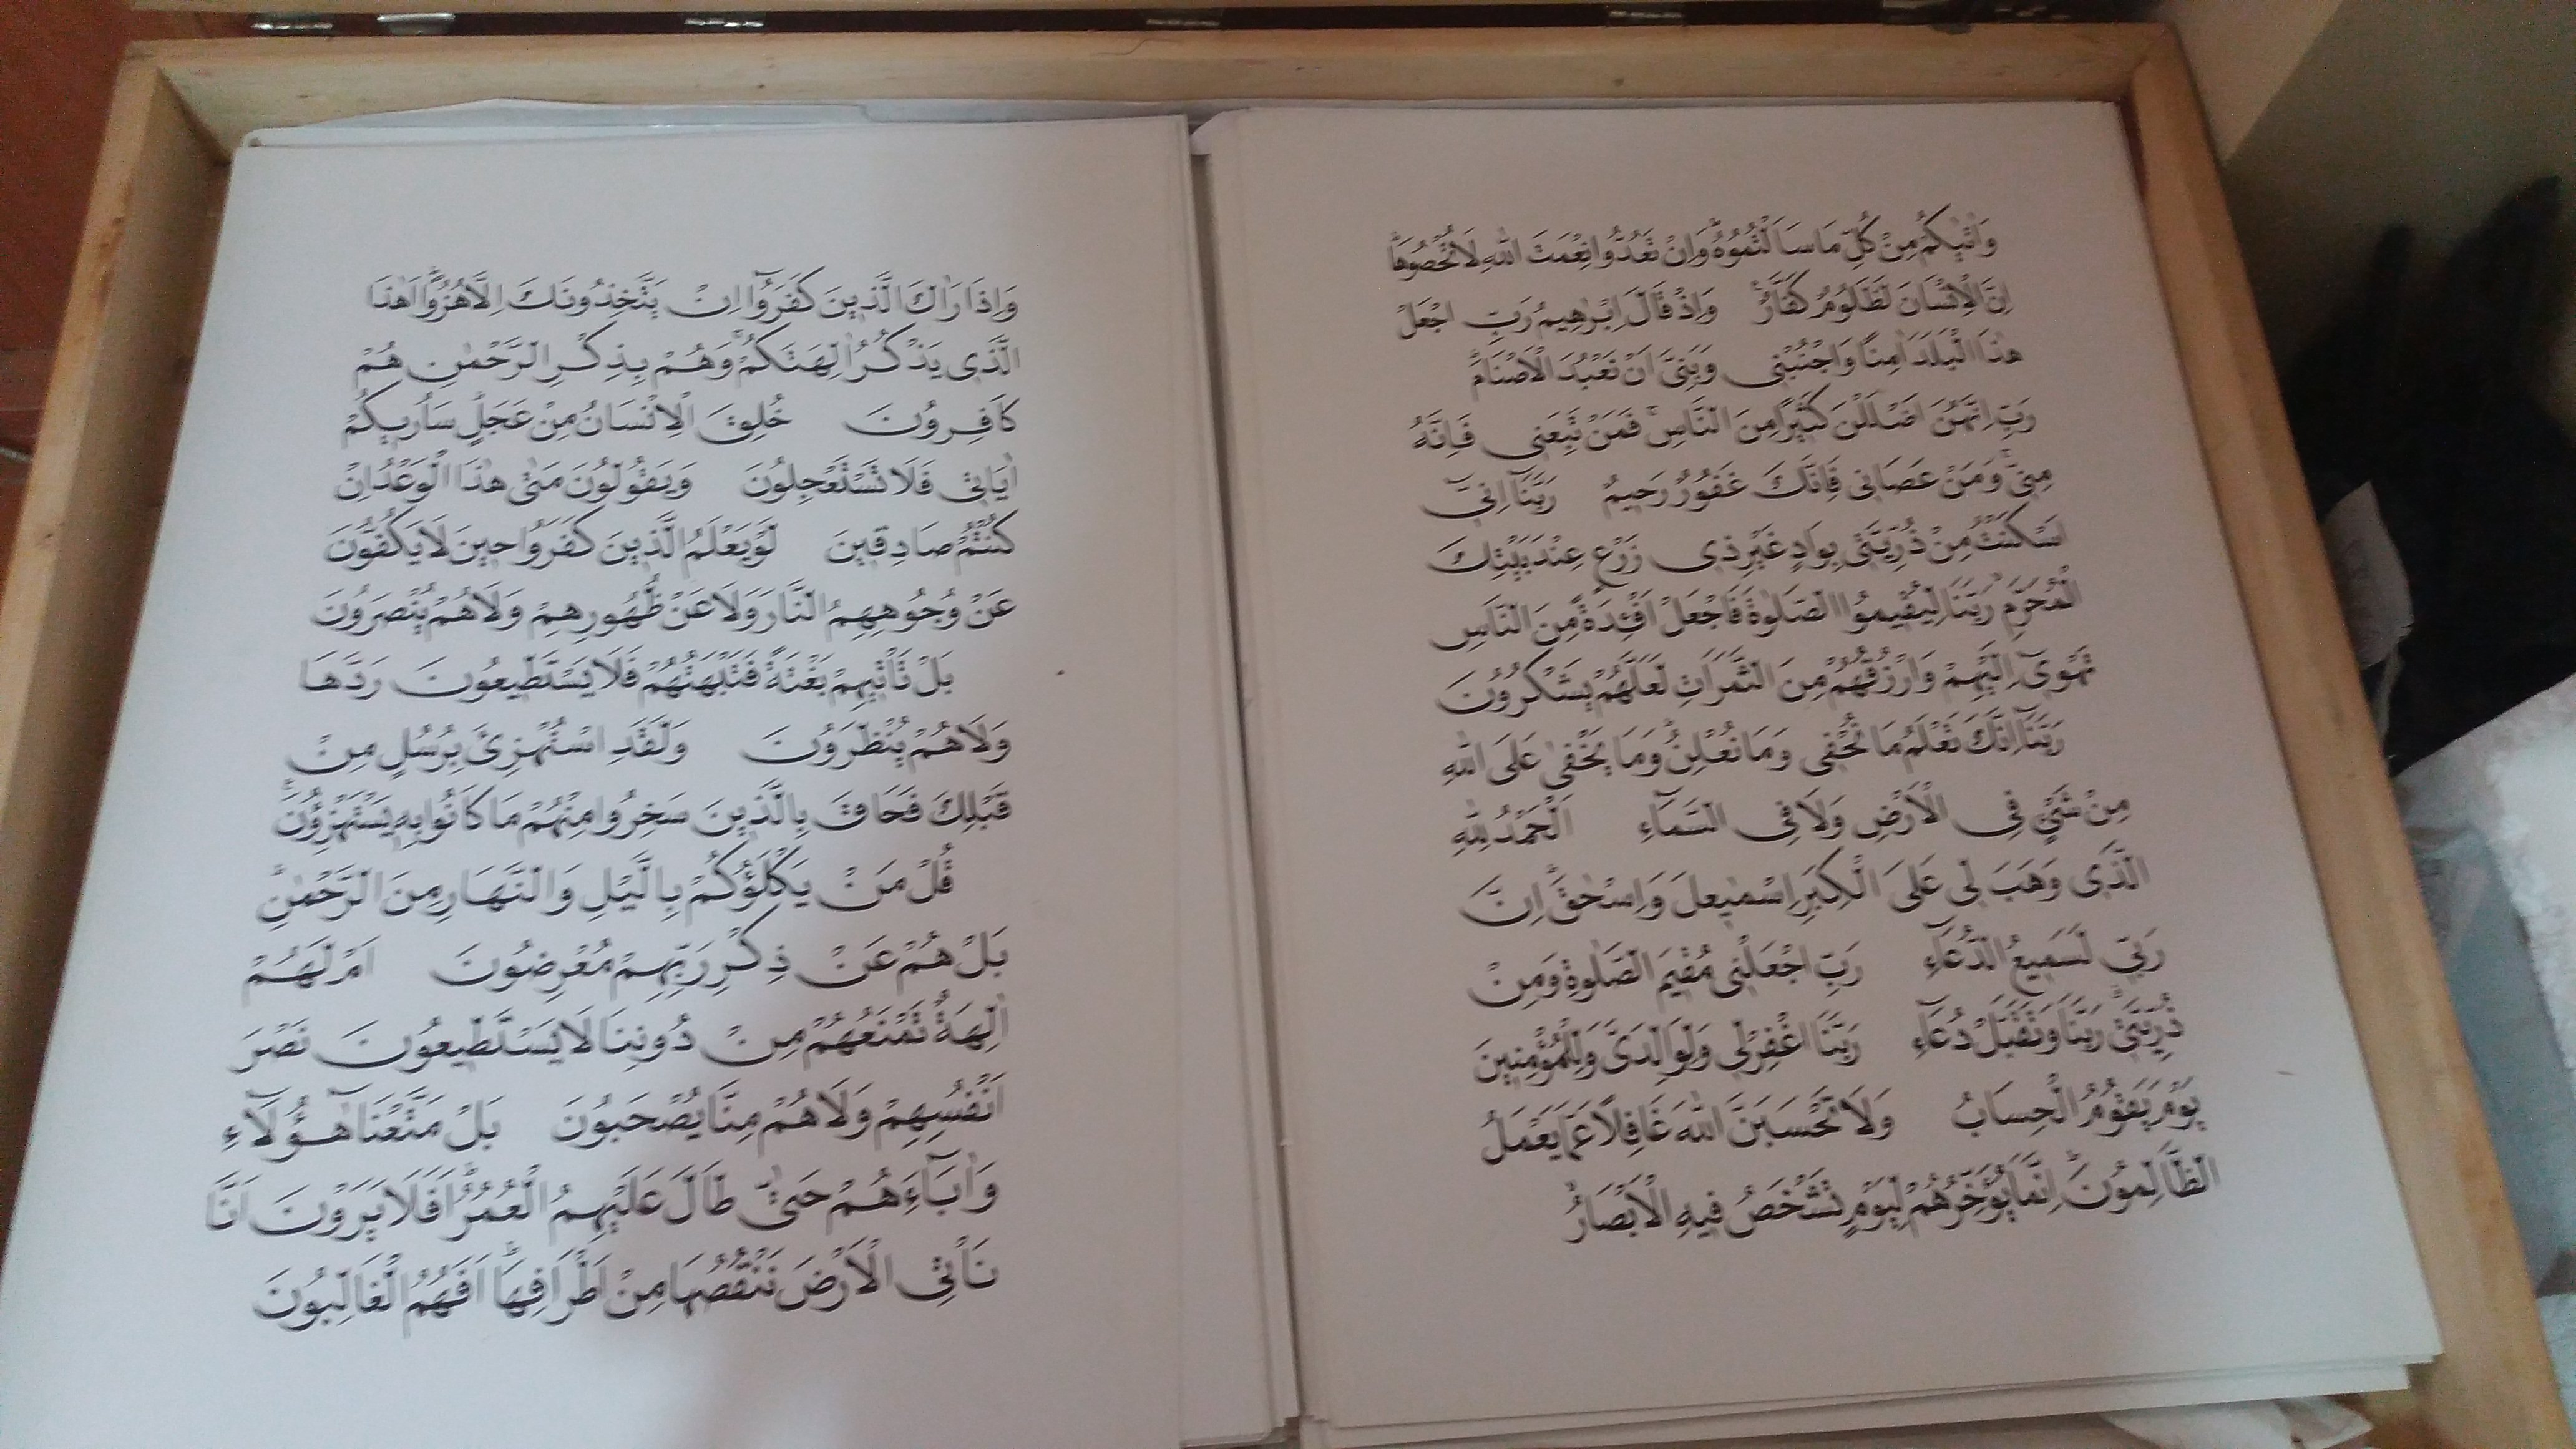 وَاٰتٰيكُمْ مِنْ كُلِّ مَا سَاَلْتُمُوهُۜ وَاِنْ تَعُدُّوا نِعْمَتَ اللّٰهِ لَا تُحْصُوهَاۜ
اِنَّ الْاِنْسَانَ لَظَلُومٌ كَفَّارٌ۟ وَاِذْ قَالَ اِبْرٰهِيمُ رَبِّ اجْعَلْ
هٰذَا الْبَلَدَ اٰمِنًا وَاجْنُبْنِي وَبَنِيَّ اَنْ نَعْبُدَ الْاَصْنَامَۜ
رَبِّ اِنَّهُنَّ اَضْلَلْنَ كَثِيرًا مِنَ النَّاسِۚ فَمَنْ تَبِعَنِي فَاِنَّهُ
مِنِّيۚ وَمَنْ عَصَانِي فَاِنَّكَ غَفُورٌ رَحِيمٌ رَبَّنَٓا اِنِّٓي
اَسْكَنْتُ مِنْ ذُرِّيَّتِي بِوَادٍ غَيْرِ ذِي زَرْعٍ عِنْدَ بَيْتِكَ
الْمُحَرَّمِۙ رَبَّنَا لِيُقِيمُوا الصَّلٰوةَ فَاجْعَلْ اَفْـِٔدَةً مِنَ النَّاسِ
تَهْوِٓي اِلَيْهِمْ وَارْزُقْهُمْ مِنَ الثَّمَرَاتِ لَعَلَّهُمْ يَشْكُرُونَ
رَبَّنَٓا اِنَّكَ تَعْلَمُ مَا نُخْفِي وَمَا نُعْلِنُۜ وَمَا يَخْفٰى عَلَى اللّٰهِ
مِنْ شَيْءٍ فِي الْاَرْضِ وَلَا فِي السَّمَٓاءِ اَلْحَمْدُ لِلّٰهِ
الَّذِي وَهَبَ لِي عَلَى الْكِبَرِ اِسْمٰعِيلَ وَاِسْحٰقَۜ اِنَّ
رَبِّي لَسَمِيعُ الدُّعَٓاءِ رَبِّ اجْعَلْنِي مُقِيمَ الصَّلٰوةِ وَمِنْ
ذُرِّيَّتِيۗ رَبَّنَا وَتَقَبَّلْ دُعَٓاءِ رَبَّنَا اغْفِرْ لِي وَلِوَالِدَيَّ وَلِلْمُؤْمِنِينَ
يَوْمَ يَقُومُ الْحِسَابُ وَلَا تَحْسَبَنَّ اللّٰهَ غَافِلًا عَمَّا يَعْمَلُ
الظَّالِمُونَۜ اِنَّمَا يُؤَخِّرُهُمْ لِيَوْمٍ تَشْخَصُ فِيهِ الْاَبْصَارُۙ
وَاِذَا رَاٰكَ الَّذِينَ كَفَرُٓوا اِنْ يَتَّخِذُونَكَ اِلَّا هُزُوًاۜ اَهٰذَا
الَّذِي يَذْكُرُ اٰلِهَتَكُمْۚ وَهُمْ بِذِكْرِ الرَّحْمٰنِ هُمْ
كَافِرُونَ خُلِقَ الْاِنْسَانُ مِنْ عَجَلٍۜ سَاُرِيكُمْ
اٰيَاتِي فَلَا تَسْتَعْجِلُونَ وَيَقُولُونَ مَتٰى هٰذَا الْوَعْدُ اِنْ
كُنْتُمْ صَادِقِينَ لَوْ يَعْلَمُ الَّذِينَ كَفَرُوا حِينَ لَا يَكُفُّونَ
عَنْ وُجُوهِهِمُ النَّارَ وَلَا عَنْ ظُهُورِهِمْ وَلَا هُمْ يُنْصَرُونَ
بَلْ تَأْتِيهِمْ بَغْتَةً فَتَبْهَتُهُمْ فَلَا يَسْتَطِيعُونَ رَدَّهَا
وَلَا هُمْ يُنْظَرُونَ وَلَقَدِ اسْتُهْزِئَ بِرُسُلٍ مِنْ
قَبْلِكَ فَحَاقَ بِالَّذِينَ سَخِرُوا مِنْهُمْ مَا كَانُوا بِهِ يَسْتَهْزِؤُنَ۟
قُلْ مَنْ يَكْلَؤُكُمْ بِالَّيْلِ وَالنَّهَارِ مِنَ الرَّحْمٰنِۜ
بَلْ هُمْ عَنْ ذِكْرِ رَبِّهِمْ مُعْرِضُونَ اَمْ لَهُمْ
اٰلِهَةٌ تَمْنَعُهُمْ مِنْ دُونِنَا لَا يَسْتَطِيعُونَ نَصْرَ
اَنْفُسِهِمْ وَلَا هُمْ مِنَّا يُصْحَبُونَ بَلْ مَتَّعْنَا هٰٓؤُلَٓاءِ
وَاٰبَٓاءَهُمْ حَتّٰى طَالَ عَلَيْهِمُ الْعُمُرُۜ اَفَلَا يَرَوْنَ اَنَّا
نَأْتِي الْاَرْضَ نَنْقُصُهَا مِنْ اَطْرَافِهَاۜ اَفَهُمُ الْغَالِبُونَ